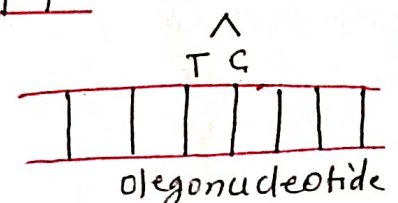 T G
olegonucleotide